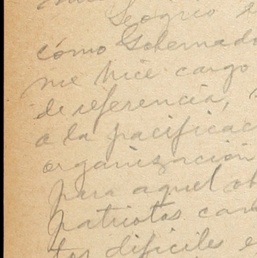 cómo Gobernado
me hice cargo
de referencia,
a la pacificac
organización
para aquel ob
patriotas can
tos dificiles e